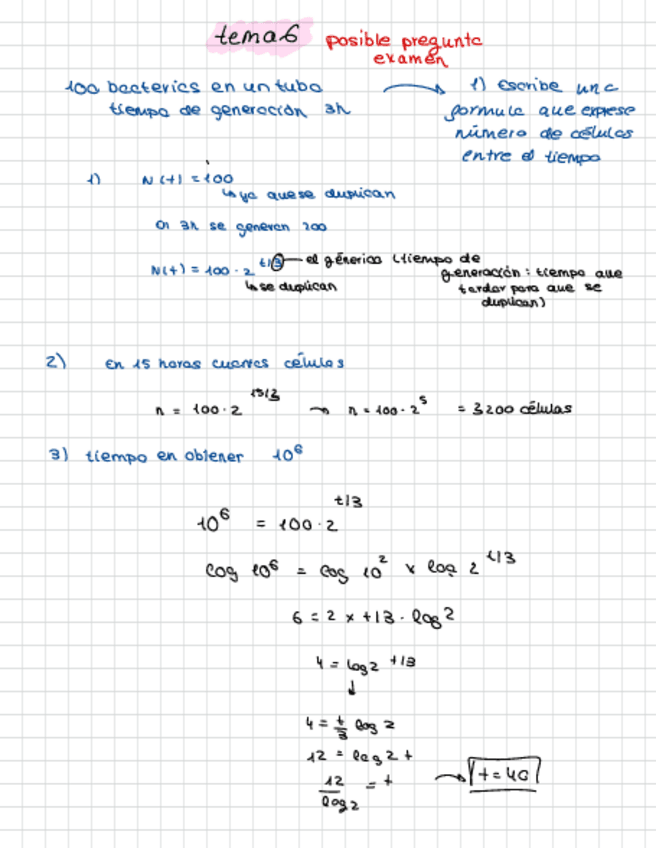 tema 6 posible pregunta
examen
100 bacterias en un tubo → 1) Escribe una
tiempo de generación 3h formula que exprese
número de células
entre el tiempo
1) N(t) = 100
↳ ya que se duplican
a 3h se generan 200
N(t) = 100 · 2^t/3 — el génerico (tiempo de
generación: tiempo que
↳ se duplican tardar para que se
duplican)
2) En 15 horas cuantas células
n = 100 · 2^15/3 → n = 100 · 2^5 = 3200 células
3) tiempo en obtener 10^6
10^6 = 100 · 2^t/3
log 10^6 = log 10^2 x log 2^t/3
6 = 2 x t/3 · log 2
4 = log 2^t/3
↓
4 = t/3 log 2
12 = log 2 t
12/log 2 = t → t = 40